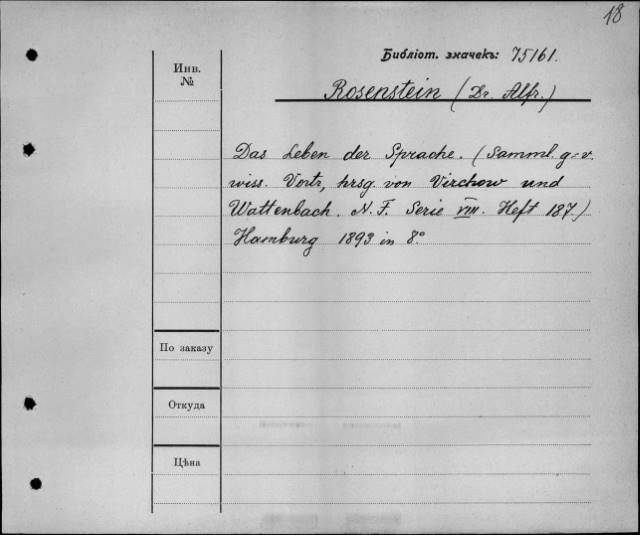 18
Библіот. значекъ: 75161.
Инв.
№
Rosenstein (Dr. Alfr.)
Das Leben der Sprache. (Samml. g=v.
wiss. Vortr, hrsg. von Virchow und
Wattenbach. N. F. Serie VIII. Heft 187.)
Hamburg 1893 in 8º
По заказу
Откуда
Цѣна